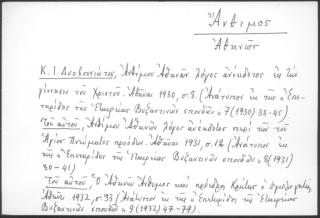 Ἄνθιμος
Ἀθηνῶν
Κ. Ι. Δυοβουνιώτου, Ἀνθίμου Ἀθηνῶν λόγος ἀνέκδοτος εἰς τὴν
γέννησιν τοῦ Χριστοῦ. Ἀθῆναι 1930, σ. 8. (Ἀνάτυπον ἐκ τῆς «Ἐπε-
τηρίδος τῆς Ἑταιρείας Βυζαντινῶν σπουδῶν» 7 (1930) 38-45)
Τοῦ αὐτοῦ, Ἀνθίμου Ἀθηνῶν λόγος ἀνέκδοτος περὶ τῆς τοῦ
Ἁγίου Πνεύματος προόδου. Ἀθῆναι 1931, σ. 12. (Ἀνάτυπον ἐκ
τῆς «Ἐπετηρίδος τῆς Ἑταιρείας Βυζαντινῶν σπουδῶν» 8 (1931)
30-41)
Τοῦ αὐτοῦ, Ὁ Ἀθηνῶν Ἄνθιμος καὶ πρόεδρος Κρήτης ὁ ὁμολογητής,
Ἀθῆναι 1932, σ. 33 (Ἀνάτυπον ἐκ τῆς «Ἐπετηρίδος τῆς Ἑταιρείας
Βυζαντινῶν σπουδῶν» 9 (1932) 47-79).